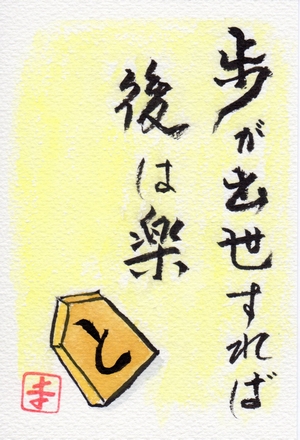 歩が出世すれば
後は楽
と
ま